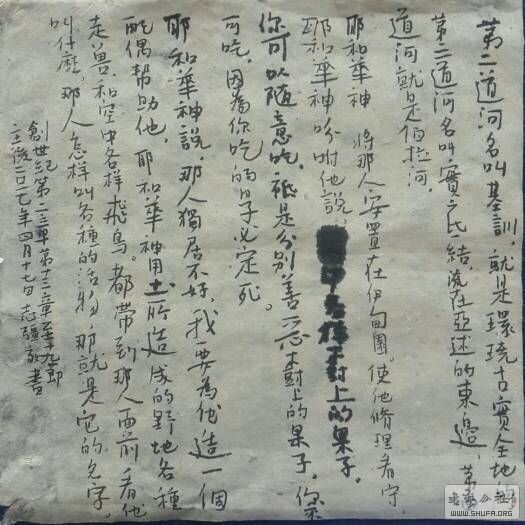 第二道河名叫基訓,就是環繞古實全地的
道河名叫實 結,流在亞述的東邊,第
道河就是伯拉河。
耶和華神 將那人安置在伊甸園。使他修理看守。
耶和華神吩咐他說, 中各樣樹上的果子,
你可以隨意吃,祗是分別善惡樹上的果子,你
可吃,因為你吃的日子必定死。
耶和華神說,那人獨居不好,我要為他造一個
配偶幫助他,耶和華神用土所造成的野地各種
走兽和空中各樣飛鳥。都帶到那人面前看他
叫什麼,那人怎樣叫各種的活物,那就是它的名字。
創世紀第二 章第十三章至十九節
主後二 年四月十七日志強敬書
WWW.SHUFA.ORG